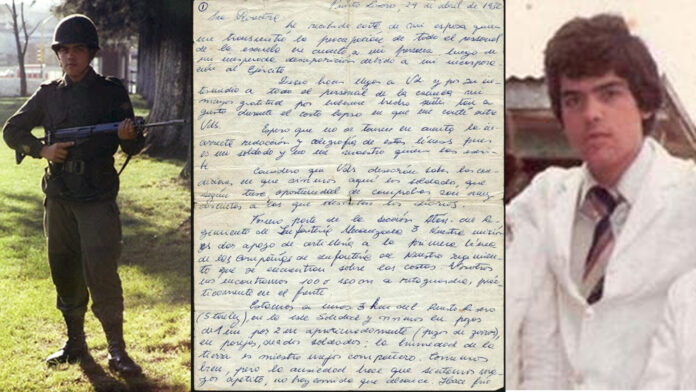 ① Puerto Rivero, 29 de abril de 1982
Sra Directora
He recibido carta de mi esposa quien
me transmitió la preocupación de todo el personal
de la escuela en cuanto a mi persona luego de
mi inesperada desaparición debido a mi incorpora
ción al Ejército.
Deseo hacer llegar a Ud y por su in
termedio a todo el personal de la escuela mi
mayor gratitud por haberme hecho sentir tan a
gusto durante el corto lapso en que me conté entre
Uds.
Espero que no se tomen en cuenta la in
correcta redacción y caligrafía de estas líneas pues
es un soldado y no un maestro quien las escri
be.
Considero que Uds desearán saber las con
diciones en que vivimos aquí los soldados, que
según tuve oportunidad de comprobar son muy
distintas a las que describen los diarios.
Formo parte de la sección del Re
gimiento de Infantería Mecanizada 3. Nuestra misión
es dar apoyo de artillería a la primera línea
de las compañías de infantería de nuestro regimien
to que se encuentran sobre las costas. Nosotros
nos encontramos a retaguardia, prác
ticamente en el frente.
Estamos a unos 3 km del Puerto Rivero
(Stanley), en la isla Soledad y vivimos en pozos
de 1 m por 2 m aproximadamente (pozos de zorro),
en parejas, de dos soldados; la humedad de la
tierra es nuestra mejor compañera. Comemos
bien, pero la ansiedad hace que
apetito, no hay comida que alcance. Hace frío